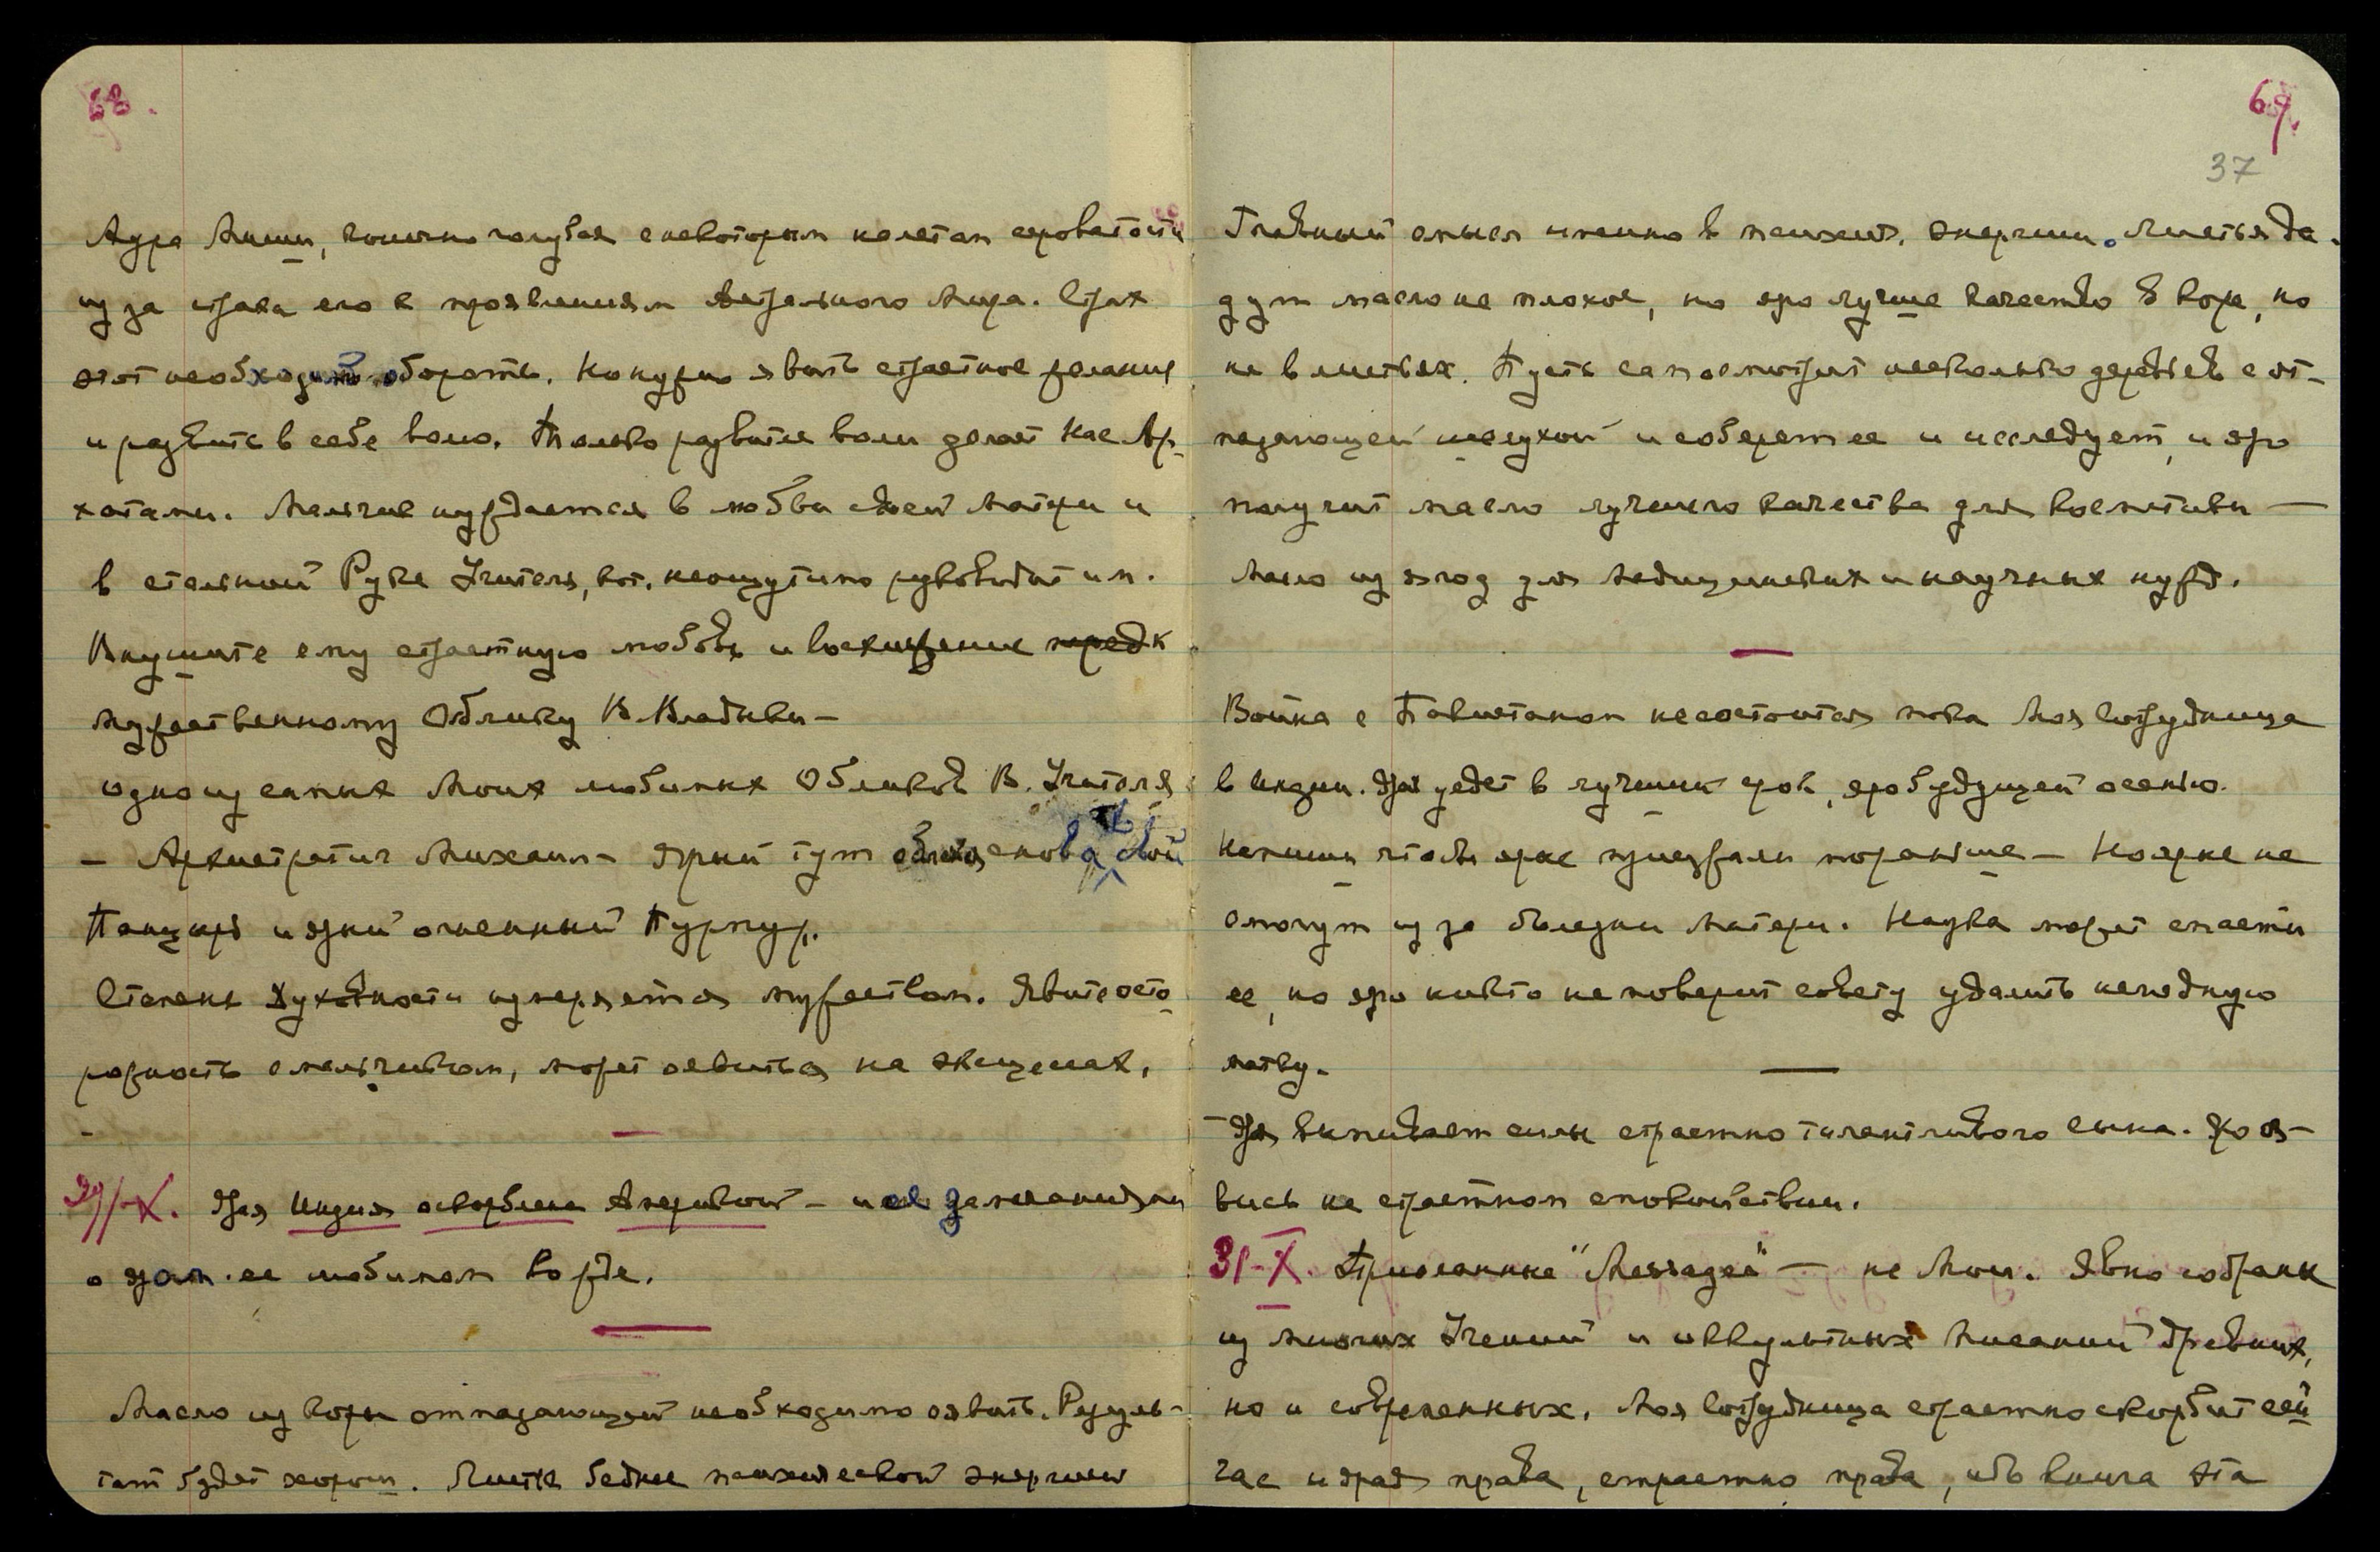 68.
Аура Миши, конечно голубая с некоторым налетом сероватости
из за страха его к проявлениям Астрального Мира. Страх
этот необходимо обороть. Но нужно явить страстное желание
и развить в себе волю. Только развитие воли делает Нас Ар-
хатами. Мальчик нуждается в любви своей Матери и
в стальной Руке Учителя, кот. неощутимо руководит им.
Внушите ему страстную любовь и восхищение перед к
мужественному Облику В. Владыки –
одно из самых Моих любимых Обликов В. Учителя
– Архистратиг Михаил – Ярый тут свой
Панцырь и ярый огненный Пурпур.
Степень Духовности измеряется мужеством. Явите осто-
рожность с мальчиком, может оявиться на экценах.
29/-X. Ярая Индия оскорблена Америкой – и ея замечаниям
о ярам. ее любимом Вожде.
Масло из коры отпадающей необходимо оявить. Резуль-
тат будет хорош. Листья беднее психической энергией
69.
37
Главный смысл именно в психич. энергии. Листья да-
дут масло не плохое, но яро лучше качество в коре, но
не в листьях. Пусть сам посмотрит несколько деревьев с от-
падающей шелухой и соберет ее и исследует, и яро
получит масло лучшего качества для
Масло из ягод для медицинских и научных нужд.
Война с Пакистаном не состоится пока Моя Сотрудница
в Индии. Яро уедет в лучший срок, яро будущей осенью.
Напиши чтобы ярые приезжали пораньше – Но ярые не
смогут из за болезни Матери. Наука может спасти
ее, но яро никто не поверит совету удалить негодную
матку.
– Яра выпивает силы страстно талантливого сына. Но оя-
вись на страстном спокойствии.
31-X. Присланные "Messages" – не Мои. Явно собраны
из многих Учений и оккультных Писаний древних,
но и современных. Моя Сотрудница страстно скорбит сей-
час и ярая права, страстно права, ибо книга эта